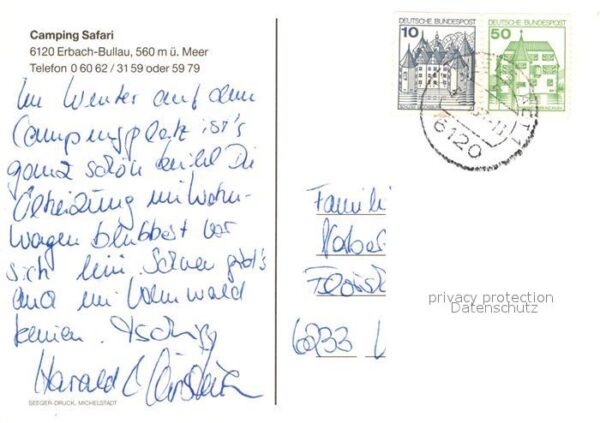 Camping Safari
6120 Erbach-Bullau, 560 m ü. Meer
Telefon 0 60 62 / 31 59 oder 59 79
Im Winter auf dem
Campingplatz ist's
ganz schön kühl Die
Ölheizung im Wohn-
wagen blubbert vor
sich hin. Schnee gibt's
auch im Odenwald
keinen. Tschüß
Harald &
SEEGER-DRUCK, MICHELSTADT
10 DEUTSCHE BUNDESPOST
50 DEUTSCHE BUNDESPOST
6120
Famili
6233
privacy protection
Datenschutz